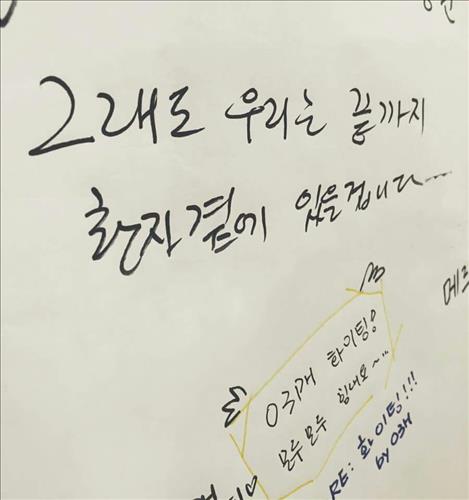 그래도 우리는 끝까지
환자곁에 있을겁니다...
메르
03개 화이팅!
모두모두 힘내요~...
RE: 화이팅!!!
by 03개